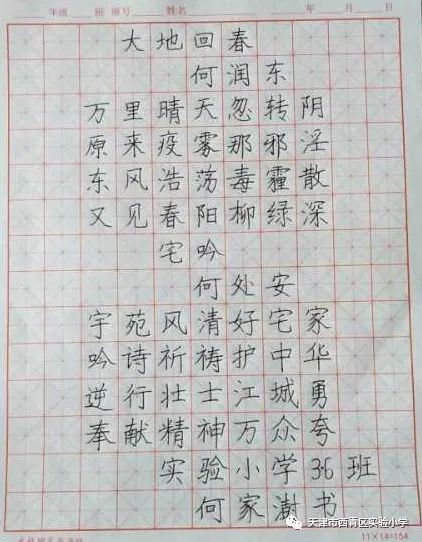 年级 班 编号 姓名 年 月 日
大地回春
何润东
万里晴天忽转阴
原来疫雾那邪淫
东风浩荡毒霾散
又见春阳柳绿深
宅吟
何处安
宇苑风清好宅家
吟诗祈祷护中华
逆行壮士江城勇
奉献精神万众夸
实验小学3.6班
何家澍书
天津市西青区实验小学
11×14=154